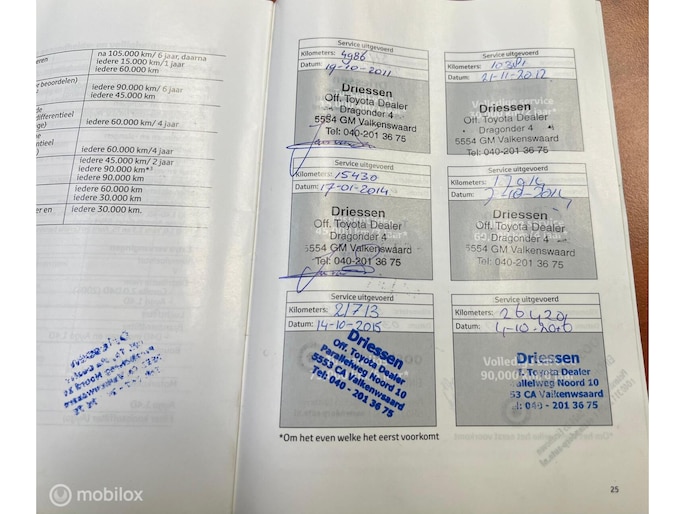 na 105.000 km/ 6 jaar, daarna
eren iedere 15.000 km/1 jaar
iedere 60.000 km
r beoordelen) iedere 90.000 km/ 6 jaar
iedere 45.000 km
de
differentieel
ge) iedere 60.000 km/ 4 jaar
ne
entieel iedere 60.000 km/4 jaar
iedere 45.000 km/ 2 jaar
iedere 90.000 km*³
iedere 90.000 km
iedere 60.000 km
iedere 30.000 km
er en iedere 30.000 km.
Service uitgevoerd
Kilometers: 4986
Datum: 19-10-2011
Driessen
Off. Toyota Dealer
Dragonder 4
5554 GM Valkenswaard
Tel: 040-201 36 75
Service uitgevoerd
Kilometers: 10381
Datum: 21-11-2012
Driessen
Off. Toyota Dealer
Dragonder 4
5554 GM Valkenswaard
Tel: 040-201 36 75
Service uitgevoerd
Kilometers: 15430
Datum: 17-01-2014
Driessen
Off. Toyota Dealer
Dragonder 4
5554 GM Valkenswaard
Tel: 040-201 36 75
Service uitgevoerd
Kilometers:
Datum:
Driessen
Off. Toyota Dealer
Dragonder 4
5554 GM Valkenswaard
Tel: 040-201 36 75
Service uitgevoerd
Kilometers: 21713
Datum: 14-10-2015
Driessen
Off. Toyota Dealer
Parallelweg Noord 10
5553 CA Valkenswaard
Tel: 040 - 201 36 75
Service uitgevoerd
Kilometers: 26420
Datum: 4-10-2016
Volled
90,000
Driessen
f. Toyota Dealer
allelweg Noord 10
53 CA Valkenswaard
el: 040 - 201 36 75
*Om het even welke het eerst voorkomt
25
mobilox